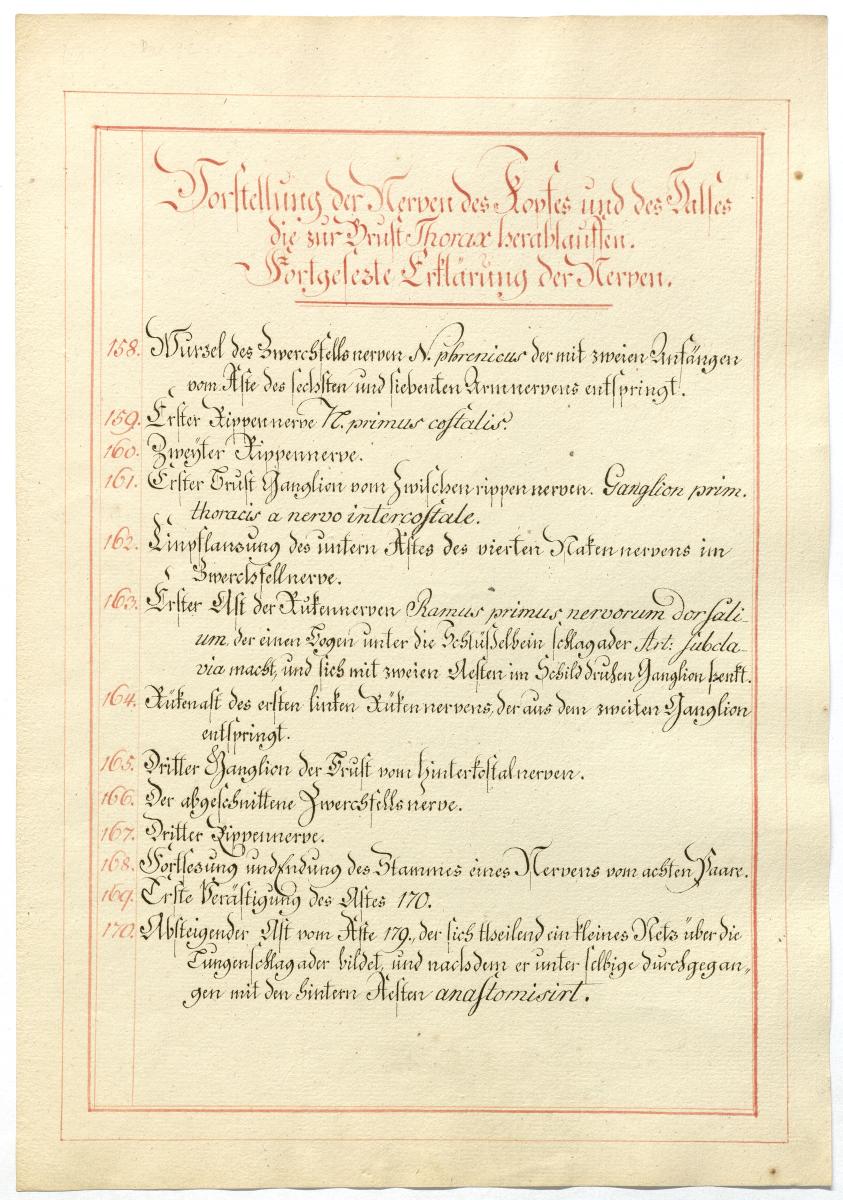 Vorstellung der Nerven des Kopfes und des Halses
die zur Brust Thorax herablauffen.
Fortgesezte Erklärung der Nerven.
158. Wurzel des Zwerchfellsnerven N. phrenicus der mit zweien Anfängen
vom Aste des sechsten und siebenten Armnervens entspringt.
159. Erster Rippennerve N. primus costalis.
160. Zweÿter Rippennerve.
161. Erster Brust Ganglion vom Zwischenrippennerven. Ganglion prim.
thoracis a nervo intercostale.
162. Einpflanzung des untern Astes des vierten Nakennervens im
Zwerchfellnerve.
163. Erster Ast der Rükennerven Ramus primus nervorum dorsali-
um, der einen Bogen unter die Schlüßelbein schlagader Art: subcla-
via macht, und sich mit zweien Aesten im Schilddrusen Ganglion senkt.
164. Rükenast des ersten linken Rükennervens, der aus dem zweiten Ganglion
entspringt.
165. Dritter Ganglion der Brust vom Hinterkostalnerven.
166. Der abgeschnittene Zwerchfellsnerve.
167. Dritter Rippennerve.
168. Fortsezung und Endung des Stammes eines Nervens vom achten Paare.
169. Erste Verästigung des Astes 170.
170. Absteigender Ast vom Aste 179., der sich theilend ein kleines Netz über die
Lungenschlagader bildet, und nachdem er unter selbige durchgegan-
gen mit den hintern Aesten anastomisirt.